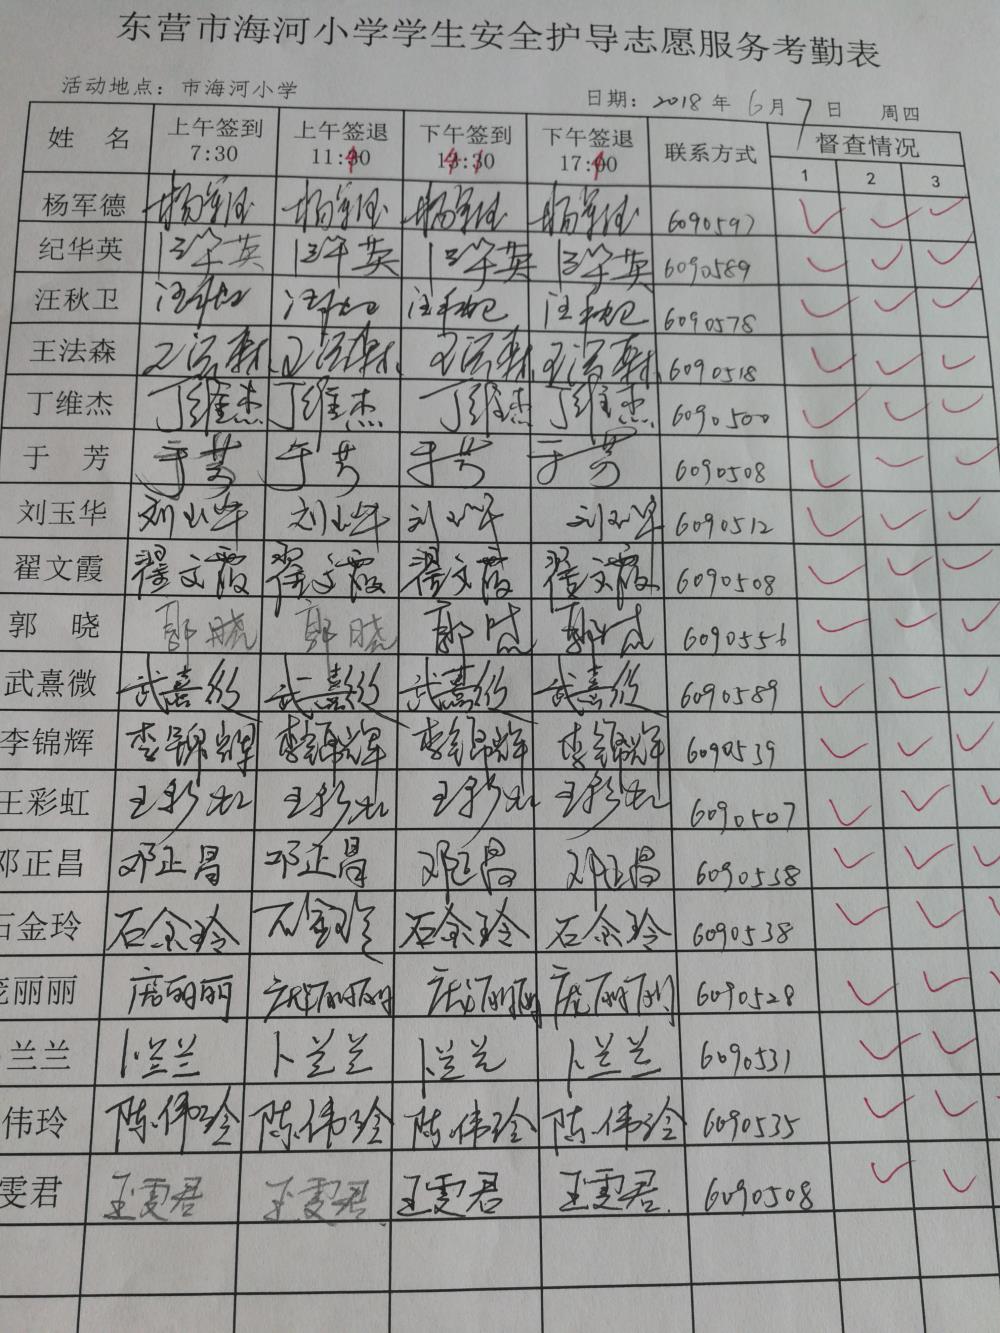 东营市海河小学学生安全护导志愿服务考勤表
活动地点：市海河小学 日期：2018 年 6 月 7 日 周四
姓 名 上午签到 上午签退 下午签到 下午签退 联系方式 督查情况
7:30 1 2 3
杨军德 杨军德 杨军德 杨军德 杨军德 6090597
纪华英 纪华英 纪华英 纪华英 纪华英 6090589
汪秋卫 汪秋卫 汪秋卫 汪秋卫 汪秋卫 6090578
王法森 王法森 王法森 王法森 王法森 6090518
丁维杰 丁维杰 丁维杰 丁维杰 丁维杰 6090500
于 芳 于芳 于芳 于芳 于芳 6090508
刘玉华 刘玉华 刘玉华 刘玉华 刘玉华 6090512
翟文霞 翟文霞 翟文霞 翟文霞 翟文霞 6090508
郭 晓 郭晓 郭晓 郭晓 郭晓 6090556
武熹微 武熹微 武熹微 武熹微 武熹微 6090589
李锦辉 李锦辉 李锦辉 李锦辉 李锦辉 6090539
王彩虹 王彩虹 王彩虹 王彩虹 王彩虹 6090507
邓正昌 邓正昌 邓正昌 邓正昌 邓正昌 6090538
石金玲 石金玲 石金玲 石金玲 石金玲 6090538
庞丽丽 庞丽丽 庞丽丽 庞丽丽 庞丽丽 6090528
兰兰 卜兰兰 卜兰兰 卜兰兰 卜兰兰 6090531
伟玲 陈伟玲 陈伟玲 陈伟玲 陈伟玲 6090535
雯君 王雯君 王雯君 王雯君 王雯君 6090508